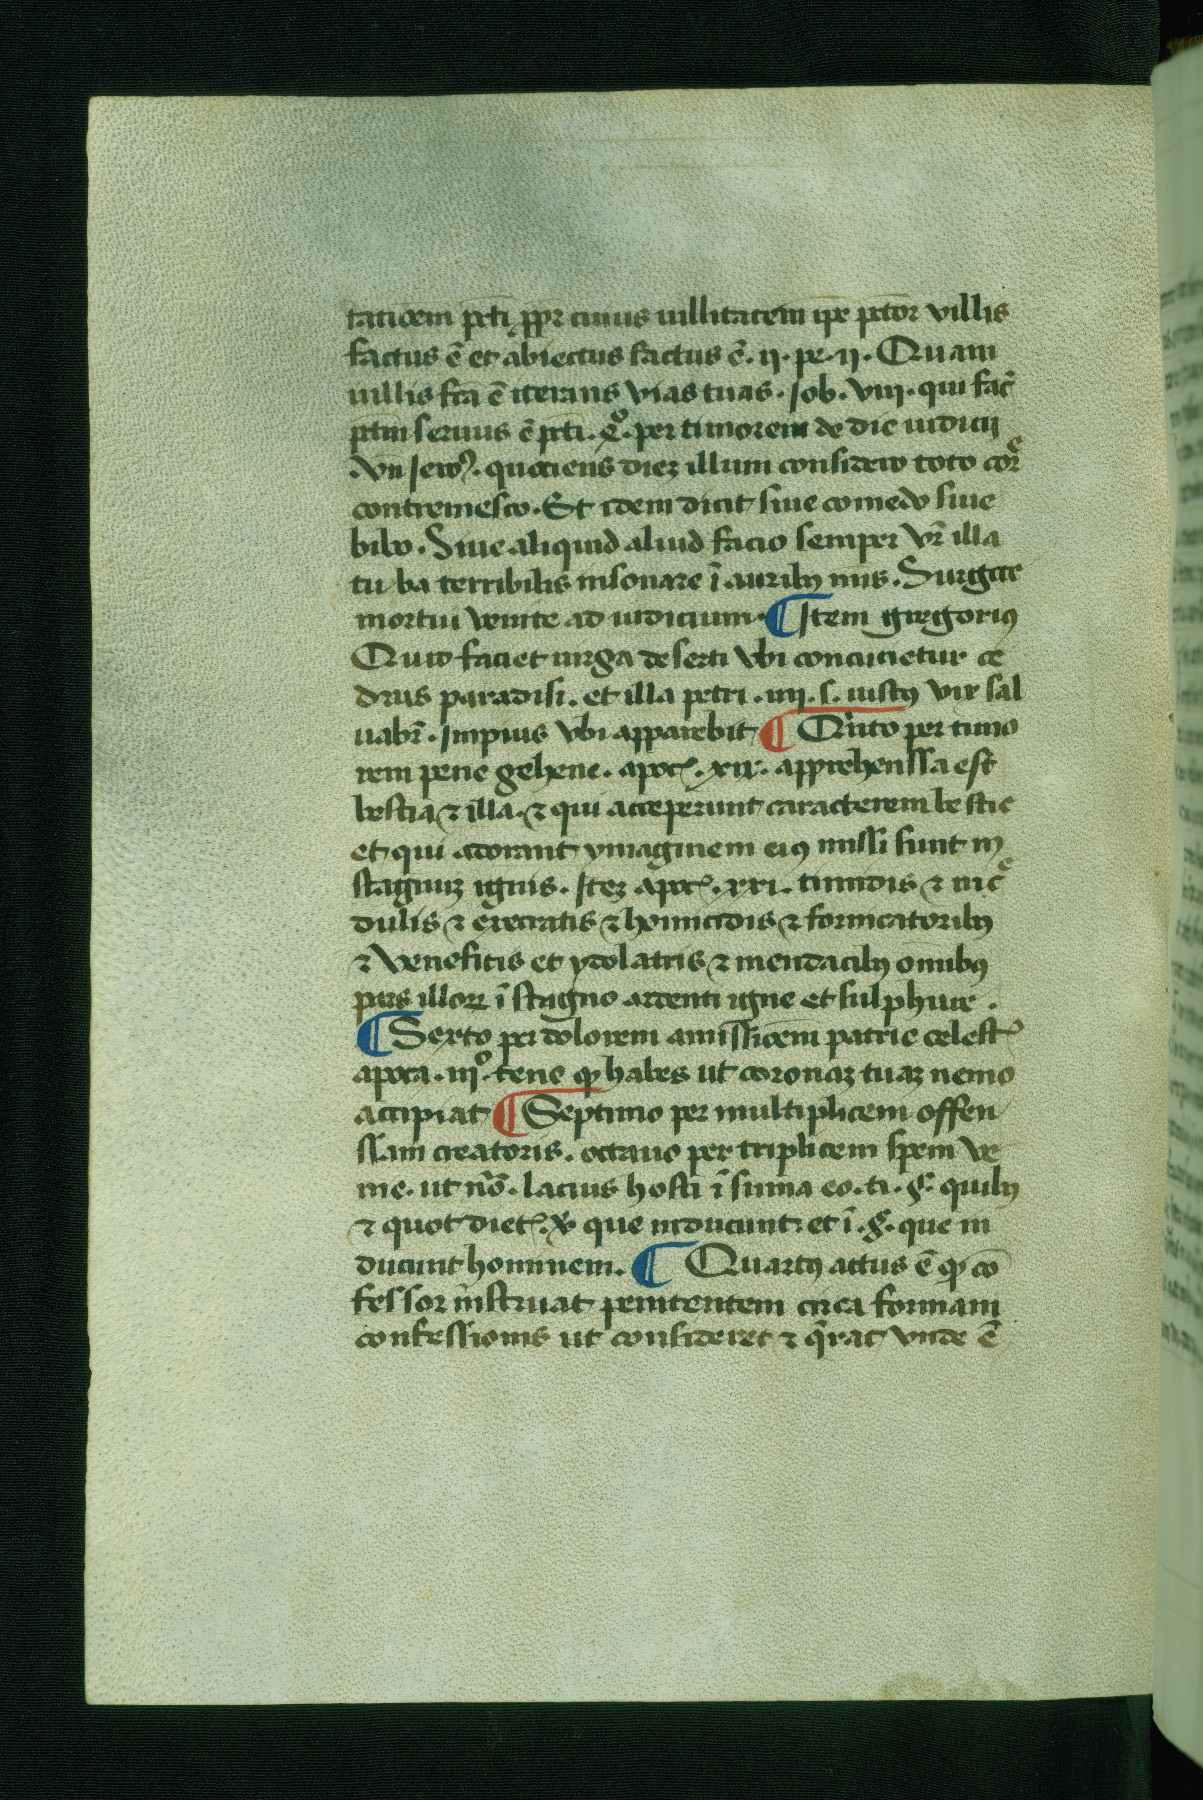 tatiōem pcti ꝓpr cuius uillitatem ipe pctor villis
factus ē et abiectus factus ē. ii. pe. ii. Quam
uillis fca ē iterans vias tuas. Job. viii. qui fac̄
pctm seruus ē pcti. qͦ. per timorem de die iudicii
.vn Jeroꝰ. quociens diez illum considero toto cor̄e
contremesco. Et idem dicit siue comedo siue
bibo. Siue aliquid aliud facio semper vr̄ illa
tu ba terribilis insonare ī auribꝫ mis. Surgite
mortui venite ad iudicium. ¶ Item gregoriꝯ
Quid faciet uirga deserti vbi concucietur ce
drus paradisi. et illa petri. iiii. s. iustꝯ vix sal
uabr̄. Impius vbi apparebit ¶ Qnito per timo
rem pene gehene. apoc. xix. apprehenssa est
bestia ⁊ illa. ⁊ qui acceperunt caracterem bestie
et qui adorant ymaginem eiꝯ missi sunt in
stagnuz ignis. Itez apoc. xxi. timidis ⁊ inc̄e
dulis ⁊ execratis ⁊ homicidis ⁊ fornicatoribꝫ
⁊ veneficis et ydolatris ⁊ mendacibꝫ omnibꝫ
pars illoꝝ ī stagno ardenti igne et sulphure.
¶ Sexto per dolorem amissiōem patrie celest
apoca. iiiͦ. tene qꝫ habes ut coronaz tuaz nemo
accipiat ¶ Septimo per multiplicem offen
ssam creatoris. octauo per triplicem spem ve
nie. ut nō. lacius hosti ī suma eo. ti. §. quibꝫ
⁊ quot diet. ꝟ que inducunt et ī. §. que in
ducunt hominem. ¶ Quartꝯ actus ē qꝫ cō
fessor instruat penitentem circa formam
confessionis ut consideret ⁊ q̄rat vnde ē